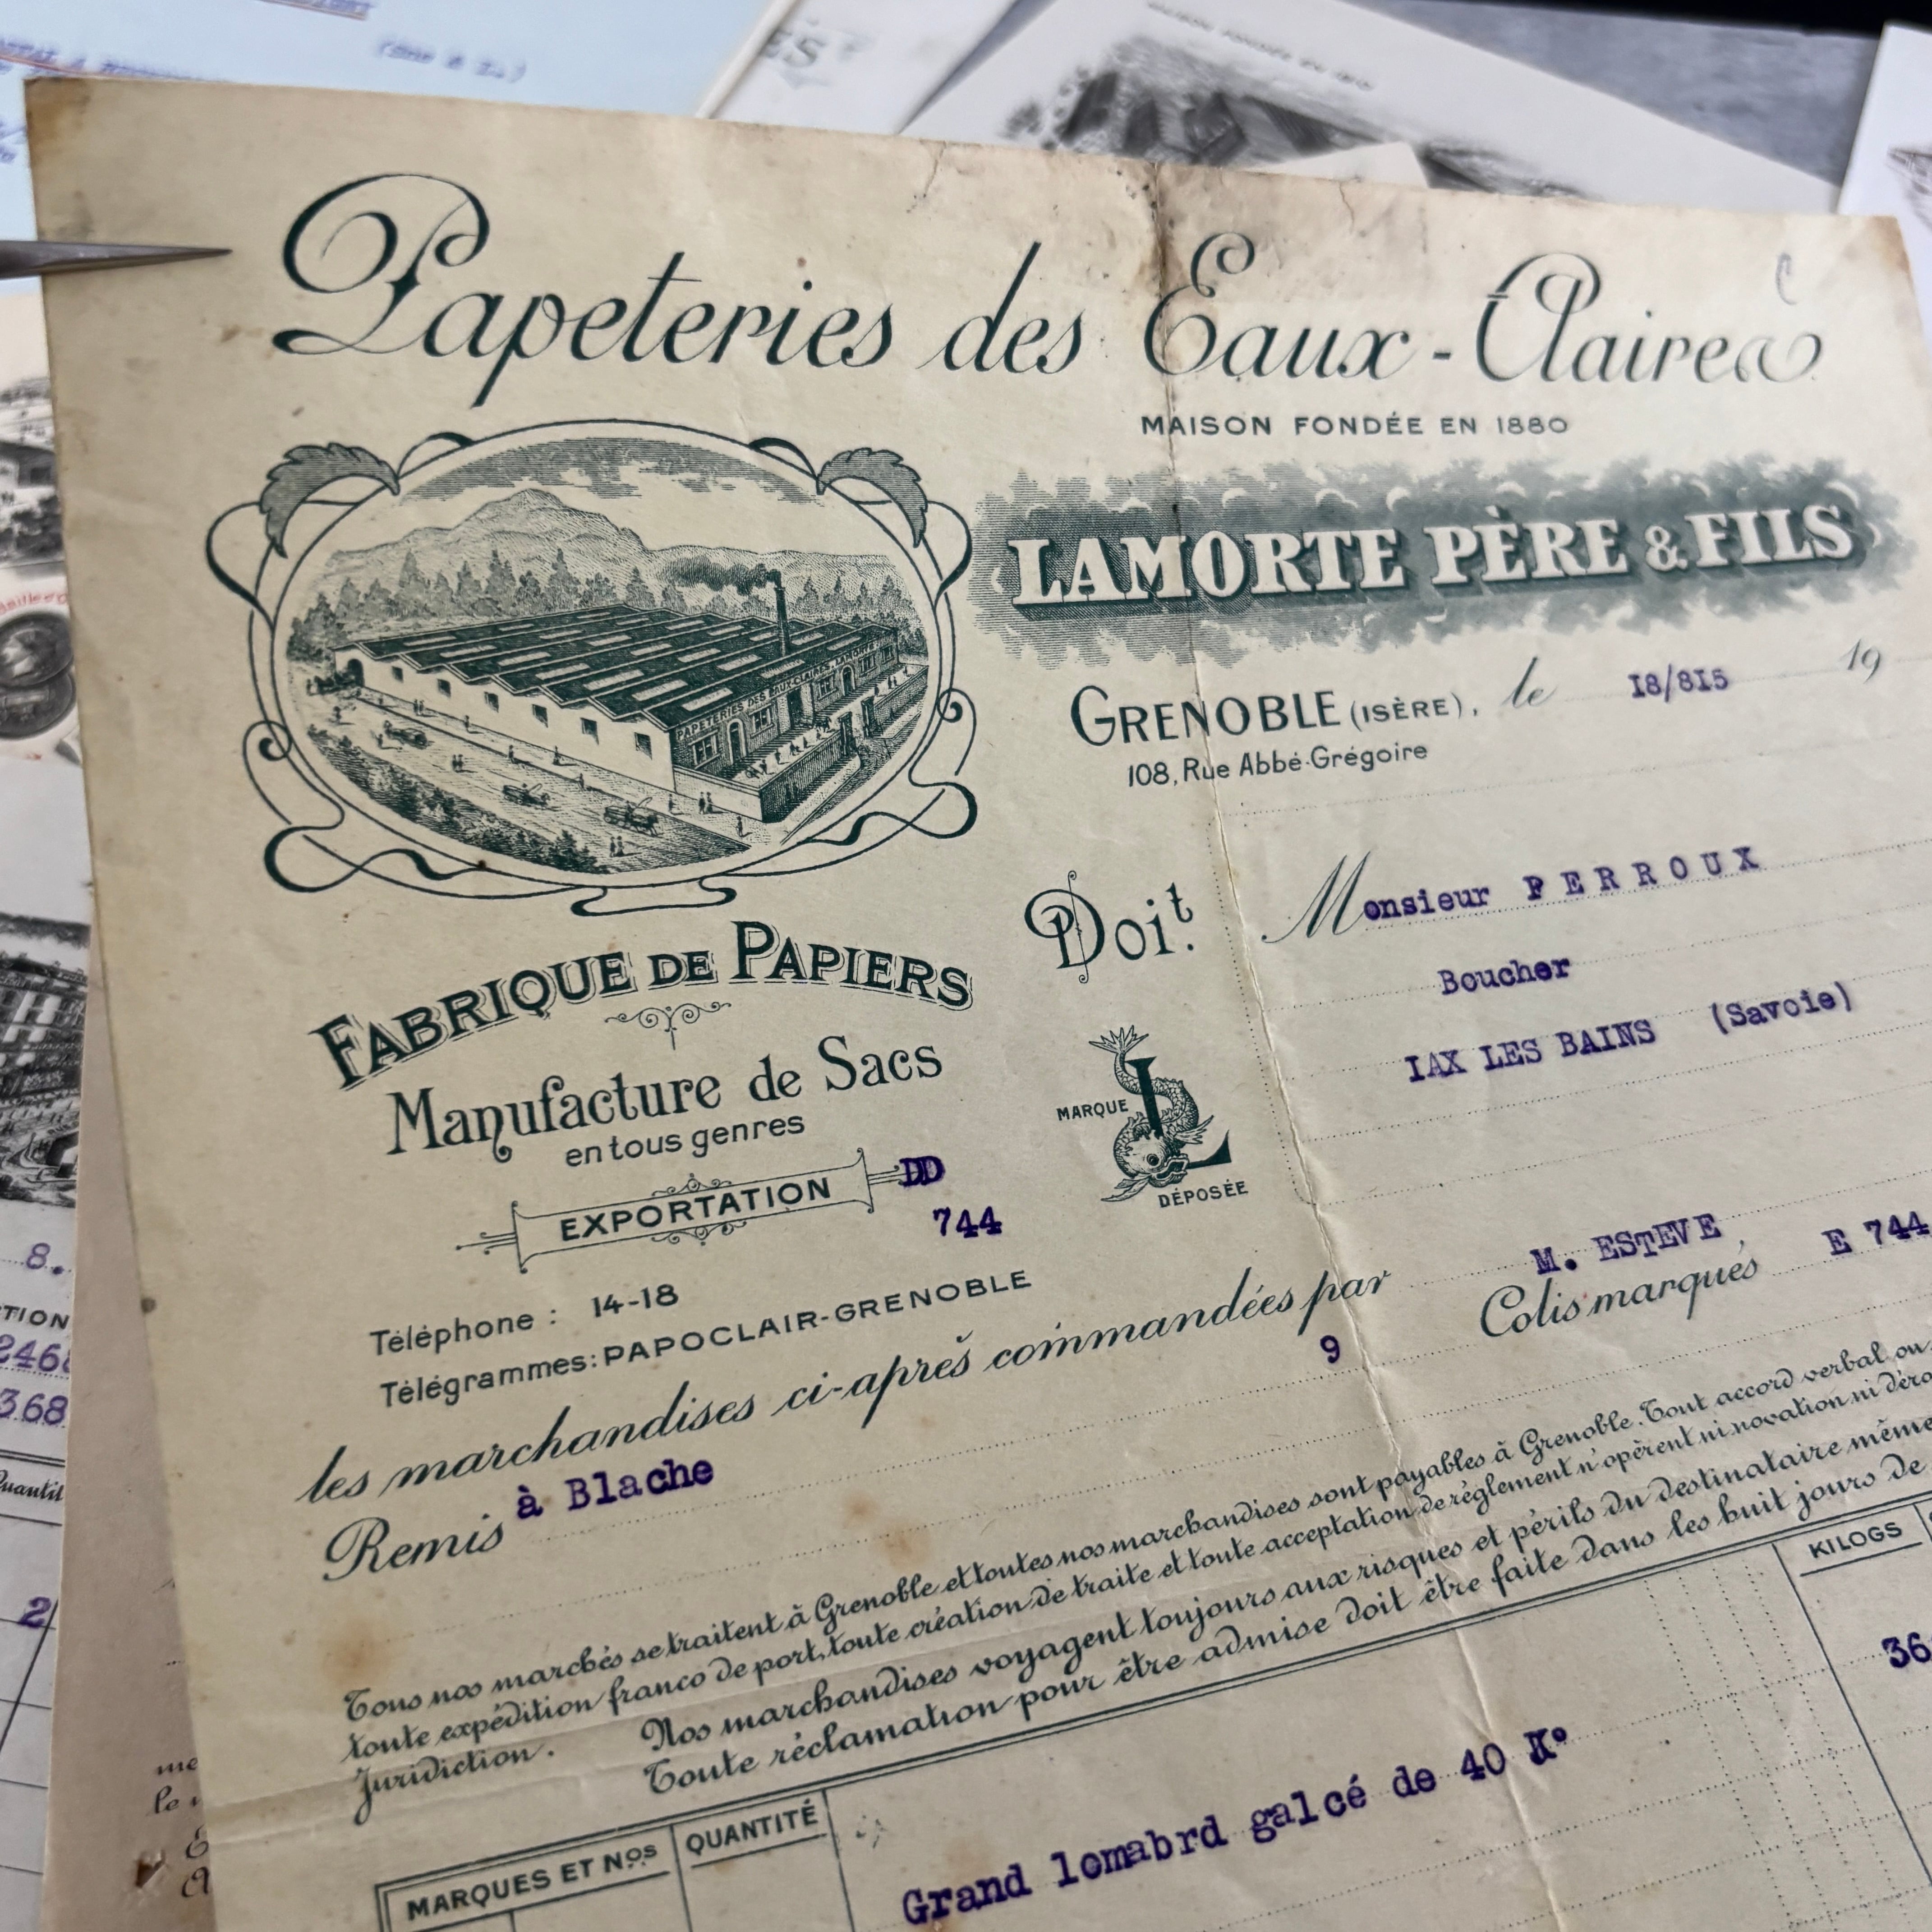 Papeteries des Eaux-Claires
MAISON FONDÉE EN 1880
LAMORTE PÈRE & FILS
PAPETERIES DES EAUX-CLAIRES, LAMORTE
GRENOBLE (ISÈRE), le 18/815 19
108, Rue Abbé-Grégoire
Doit. Monsieur PERROUX
Boucher
IAX LES BAINS (Savoie)
FABRIQUE DE PAPIERS
Manufacture de Sacs
en tous genres
EXPORTATION
DD
744
MARQUE L L DÉPOSÉE
Téléphone : 14-18
Télégrammes: PAPOCLAIR-GRENOBLE
les marchandises ci-après commandées par M. ESTEVE, Colis marqués E 744
9
Remis à Blache
Tous nos marchés se traitent à Grenoble et toutes nos marchandises sont payables à Grenoble. Tout accord verbal ou
toute expédition franco de port, toute création de traite et toute acceptation de réglement n'opèrent ni novation ni déro
Juridiction. Nos marchandises voyagent toujours aux risques et périls du destinataire même
Toute réclamation pour être admise doit être faite dans les huit jours de
MARQUES ET Nos QUANTITÉ KILOGS
36
Grand lomabrd galcé de 40 K°
8.
TION
246
368
Quantit
2
me
le